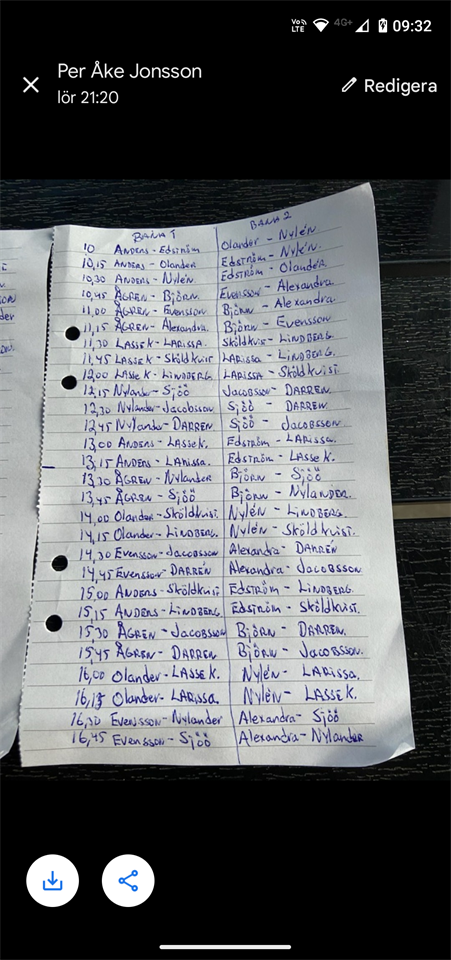 Vo)) LTE 4G+ 09:32
Per Åke Jonsson
lör 21:20
Redigera
BANA 1 BANA 2
10 ANDERS - EDSTRÖM Olander - Nylén
10,15 ANDERS - Olander EDSTRÖM - Nylén.
10,30 ANDERS - Nylén EDSTRÖM - Olander
10,45 ÅGREN - Björn. Evensson - Alexandra
11,00 ÅGREN - Evensson Björn - Alexandra
11,15 ÅGREN - Alexandra. Björn - Evensson
11,30 LASSE K - LARISSA. Sköldkvist - LINDBERG.
11,45 LASSE K - Sköldkvist LARissa - LINDBERG.
12,00 LASSE K - LINDBERG. LARISSA - Sköldkvist
12,15 Nylander - Sjöö Jacobsson - DARREN.
12,30 Nylander - Jacobsson Sjöö - DARREN
12,45 Nylander - DARREN Sjöö - JACOBSSON.
13,00 ANDERS - LASSE K. EDSTRÖM - LARissa.
13,15 ANDERS - LARissa. EDSTRÖM - LASSE K.
13,30 ÅGREN - Nylander Björn - Sjöö
13,45 ÅGREN - Sjöö Björn - NYLANDER.
14,00 Olander - Sköldkvist. Nylén - LINDBERG.
14,15 Olander - LINDBERG. Nylén - Sköldkvist.
14,30 Evensson - Jacobsson Alexandra - DARREN
14,45 Evensson - DARREN Alexandra - JACOBSSON
15,00 ANDERS - Sköldkvist EDSTRÖM - LINDBERG.
15,15 ANDERS - LINDBERG. EDSTRÖM - Sköldkvist.
15,30 ÅGREN - Jacobsson Björn - DARREN.
15,45 ÅGREN - DARREN Björn - Jacobsson.
16,00 Olander - LASSE K. Nylén - LARissa.
16,15 Olander - LARissa. Nylén - LASSE K.
16,30 Evensson - Nylander Alexandra - Sjöö
16,45 Evensson - Sjöö Alexandra - Nylander